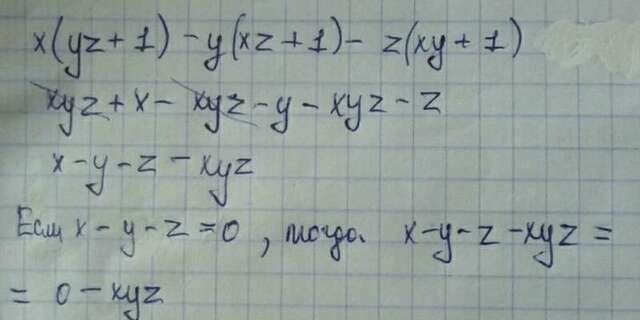 x(yz+1) - y(xz+1) - z(xy+1)
xyz + x - xyz - y - xyz - z
x - y - z - xyz
Если x - y - z = 0, тогда x - y - z - xyz =
= 0 - xyz